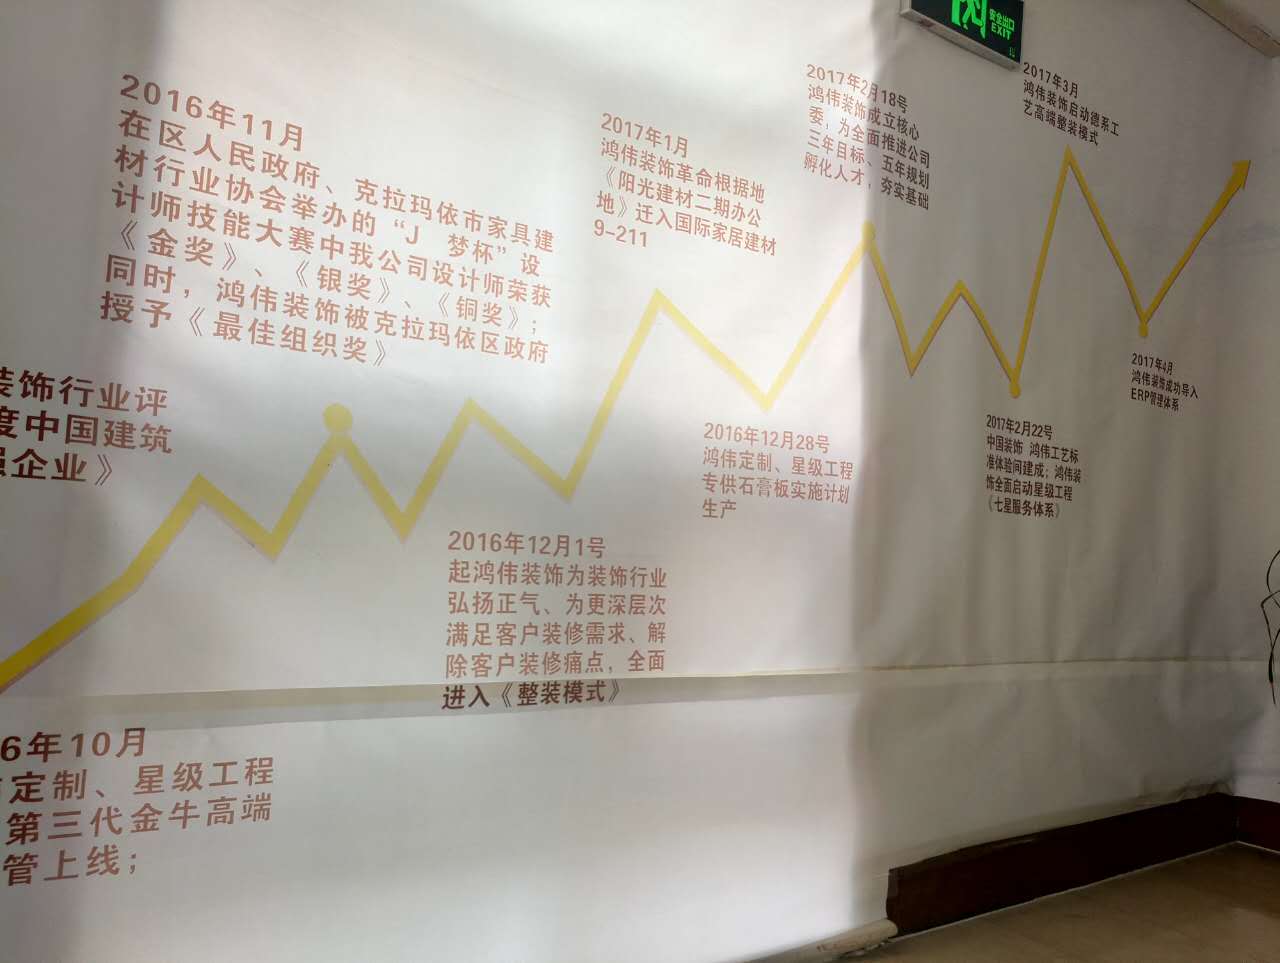 安全出口
EXIT
2016年11月
在区人民政府、克拉玛依市家具建
材行业协会举办的“J 梦杯”设
计师技能大赛中我公司设计师荣获
《金奖》、《银奖》、《铜奖》；
同时，鸿伟装饰被克拉玛依区政府
授予《最佳组织奖》
2017年1月
鸿伟装饰革命根据地
《阳光建材二期办公
地》迁入国际家居建材
9-211
2017年2月18号
鸿伟装饰成立核心
委，为全面推进公司
三年目标、五年规划
孵化人才，夯实基础
2017年3月
鸿伟装饰启动德系工
艺高端整装模式
装饰行业评
度中国建筑
强企业》
2016年12月1号
起鸿伟装饰为装饰行业
弘扬正气、为更深层次
满足客户装修需求、解
除客户装修痛点，全面
进入《整装模式》
2016年12月28号
鸿伟定制、星级工程
专供石膏板实施计划
生产
2017年2月22号
中国装饰 鸿伟工艺标
准体验间建成；鸿伟装
饰全面启动星级工程
《七星服务体系》
2017年4月
鸿伟装饰成功导入
ERP管理体系
6年10月
定制、星级工程
第三代金牛高端
管上线；